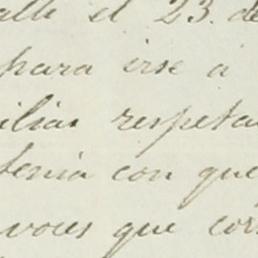 alle el 23. de
para irse á
ilias respeta
tenia con que
voces que cor